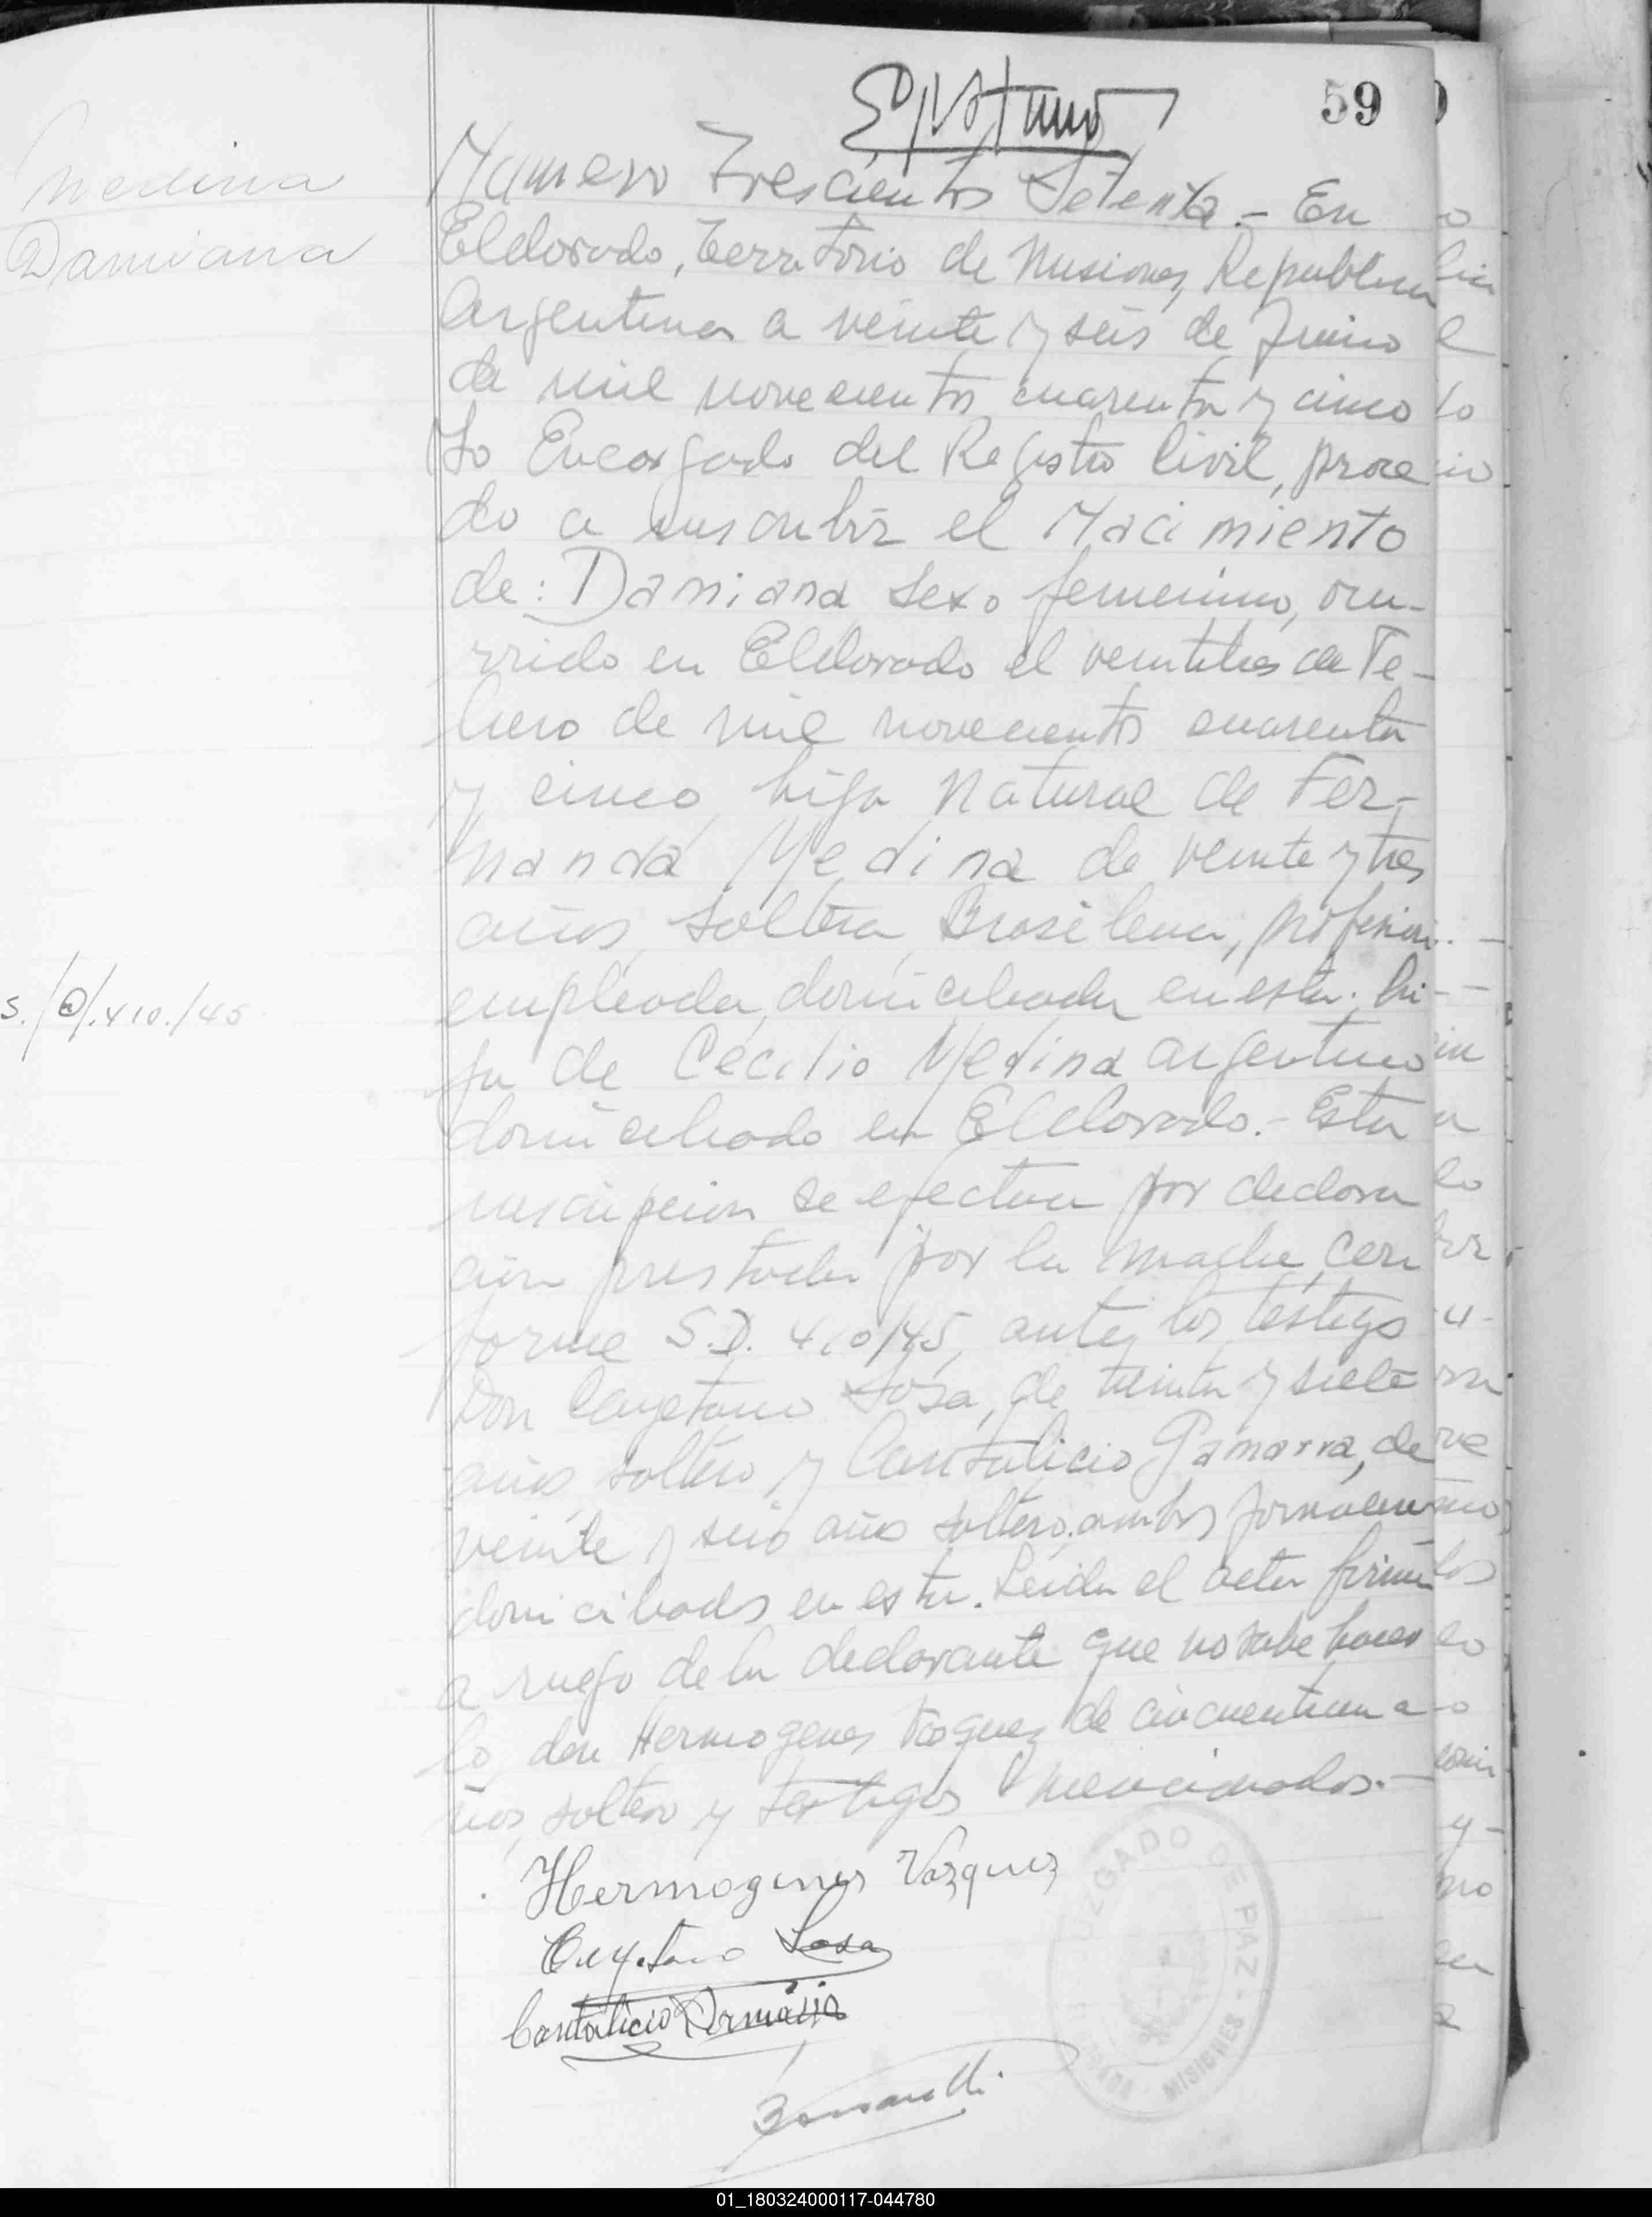 59
Medina
Damiana
Numero Trescientos Setenta.- En
Eldorado, Territorio de Misiones, Republica
Argentina a veinte y seis de Junio
de mil novecientos cuarenta y cinco
Yo Encargado del Registro Civil, proce
do a inscribir el Nacimiento
de: Damiana sexo femenino, ocu-
rrido en Eldorado el veintitres de Fe-
brero de mil novecientos cuarenta
y cinco, hija natural de Fer-
nanda Medina de veinte y tres
años, soltera Brasilena, profesion
empleada, domiciliada en esta. hi-
ja de Cecilio Medina argentino
domiciliado en Eldorado.- Esta
inscripcion se efectua por declara
cion prestada por la madre, con
forme S.D. 410/45, ante los testigos
Don Cayetano Sosa, de treinta y siete
años soltero y Cantalicio Gamarra, de
veinte y seis años soltero, ambos jornaleros
domiciliados en esta. Leida el acta firma
a ruego de la declarante que no sabe hacer
lo, don Hermogenes Vasquez de cincuentiun a
ños, soltero y testigos mencionados.-
S./ /.410./45
Hermogenes Vazquez
Cayetano Sosa
Cantalicio
JUZGADO DE PAZ - MISIONES
01_180324000117-044780